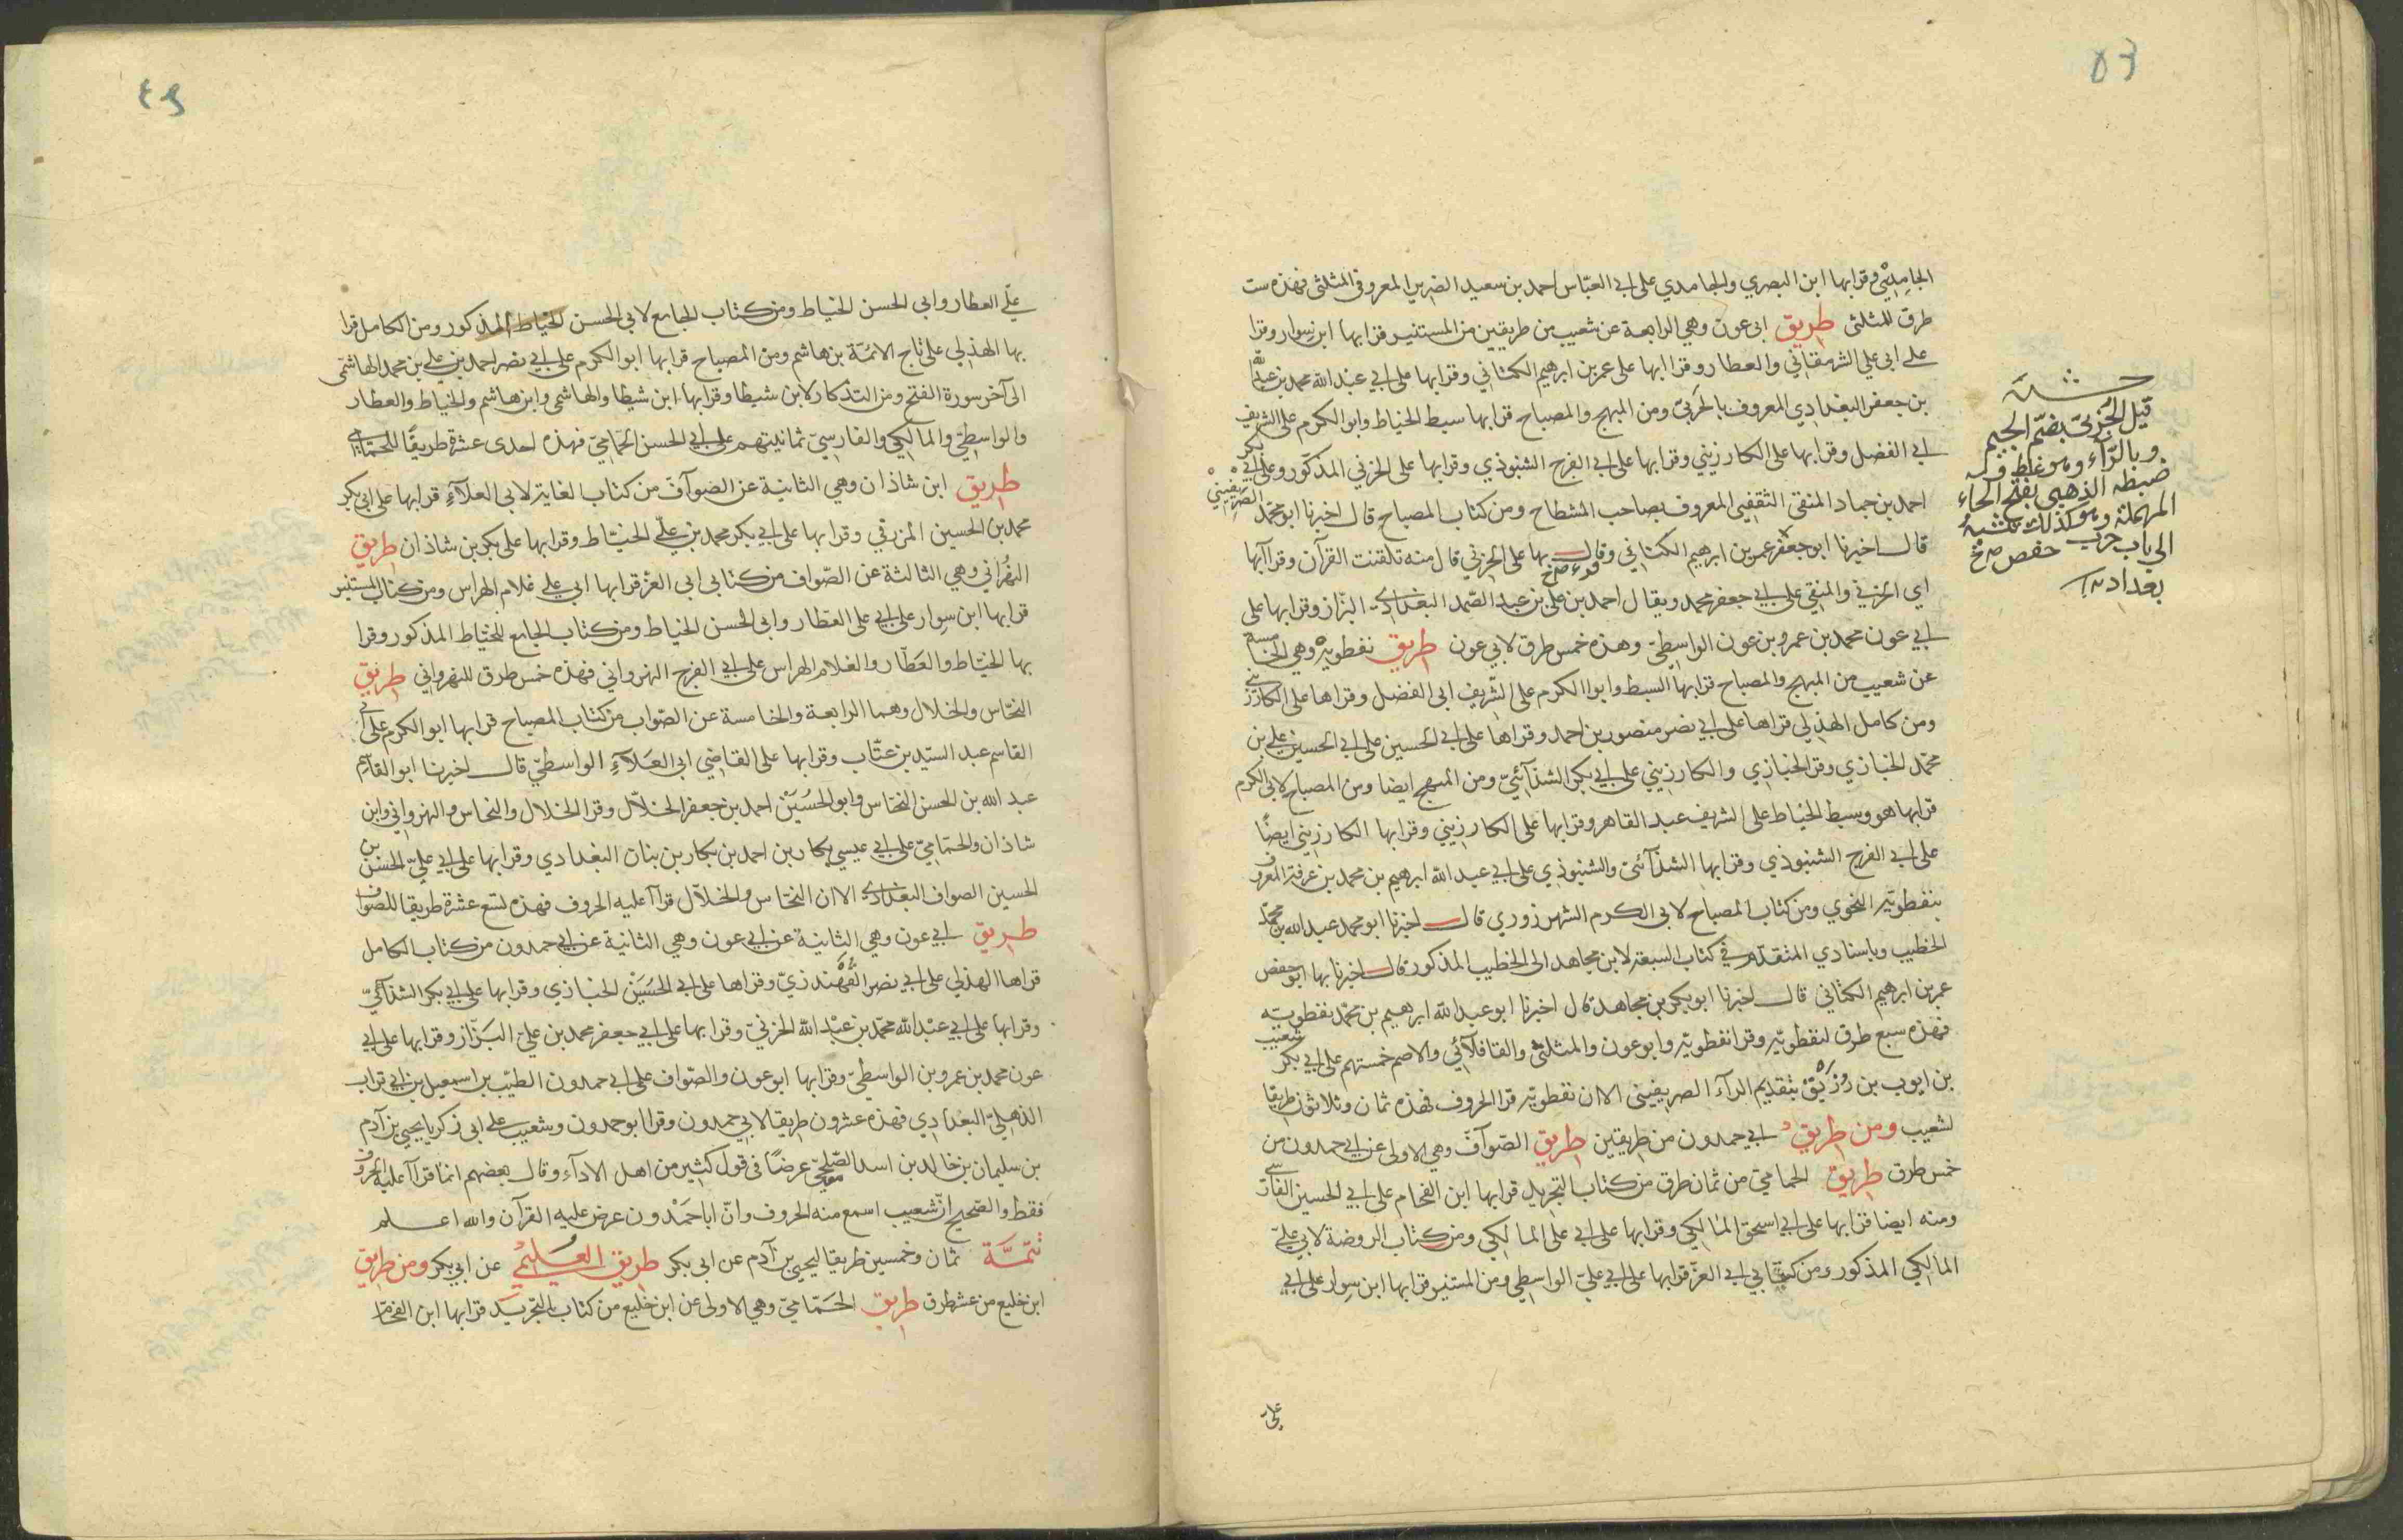 ٥٣
الجامدي وقرا بها ابن البصري والجامدي على ابي العباس احمد بن سعيد الضرير المعروف المثلثي فهذه ست
طرق للمثلثى طريق ابى عون وهي الرابعة عن شعيب من طريقين من المستنير قرا بها ابن سوار وقرا
على ابي علي الشرمقاني والعطار وقرا بها على عمر بن ابرهيم الكتاني وقرا بها على ابي عبد الله محمد بن عبد الله
بن جعفر البغدادي المعروف بالحربي ومن المبهج والمصباح قرا بها سبط الخياط وابو الكرم على الشريف
ابي الفضل وقرا بها على الكارزيني وقرا بها على ابي الفرج الشنبوذي وقرا بها على الحزني المذكور وعلى ابي بكر
احمد بن حماد المنقى الثقفي المعروف بصاحب المشطاح ومن كتاب المصباح قال اخبرنا ابو محمد الصريفيني
قال اخبرنا ابو جعفر عمر بن ابرهيم الكتاني وقال بها على الحزني قال منه تلقنت القرآن وقرآ بها
اي الحزني والمنقي على ابي جعفر محمد ويقال احمد بن علي بن عبد الصمد البغدادي البزاز وقرا بها على
ابي عون محمد بن عمرو بن عون الواسطي وهذه خمس طرق لابي عون طريق نفطويه وهي الخامسة
عن شعيب من المبهج والمصباح قرا بها السبط وابوا الكرم على الشريف ابى الفضل وقراها على الكارزيني
ومن كامل الهذلي قراها على ابي نصر منصور بن احمد وقراها على ابي الحسين على ابي الحسين علي بن
محمد الخبازي وقرا الخبازي والكارزيني على ابي بكر الشذآئي ومن المبهج ايضا ومن المصباح لابي الكرم
قرا بها هو وسبط الخياط على الشريف عبد القاهر وقرا بها على الكارزيني وقرا بها الكارزيني ايضا
على ابي الفرج الشنبوذي وقرا بها الشذآئى والشنبوذي على ابي عبد الله ابرهيم بن محمد بن عرفة المعروف
بنفطويه النحوي ومن كتاب المصباح لابى الكرم الشهرزوري قال اخبرنا ابو محمد عبد الله بن محمد
الخطيب وباسنادي المتقدم في كتاب السبعة لابن مجاهد الى الخطيب المذكور قال اخبرنا بها ابو حفص
عمر بن ابرهيم الكتاني قال اخبرنا ابو بكر بن مجاهد قال اخبرنا ابو عبد الله ابرهيم بن محمد نفطويه
فهذه سبع طرق لنفطويه وقرا نفطويه وابو عون والمثلثي والقافلآئي والاصم خمستهم على ابي بكر شعيب
بن ايوب بن رزيق بتقديم الرآء الصريفينى الا ان نفطويه قرا الحروف فهذه ثمان وثلاثون طريقا
لشعيب ومن طريق ابي حمدون من طريقين طريق الصواف وهي الاولى عن ابي حمدون من
خمس طرق طريق الحمامي من ثمان طرق من كتاب التجريد قرا بها ابن الفحام على ابي الحسين الفارسي
ومنه ايضا قرا بها على ابي اسحق المالكي وقرا بها على ابي على المالكي ومن كتاب الروضة لابي علي
المالكي المذكور ومن كتابي ابي العز قرا بها على ابي علي الواسطي ومن المستنير قرا بها ابن سوار على ابي
علي
قيل الجزبى بضم الجيم
وبالراء وهو غلط فى
ضبطه الذهبي بفتح الحاء
المهملة وهو كذلك نسبة
الى باب حرب
بغداد
علي العطار وابي الحسن الخياط ومن كتاب الجامع لابي الحسن الخياط المذكور ومن الكامل قرا
بها الهذلي على تاج الائمة بن هاشم ومن المصباح قرا بها ابو الكرم على ابي نصر احمد بن علي بن محمد الهاشمى
الى آخر سورة الفتح ومن التذكار لابن شيطا وقرا بها ابن شيطا والهاشمي وابن هاشم والخياط والعطار
والواسطي والمالكي والفارسي ثمانيتهم على ابي الحسن الحمامي فهذه احدى عشرة طريقا للحمامي
طريق ابن شاذان وهي الثانية عن الصوآف من كتاب الغاية لابي العلآء قرا بها على ابي بكر
محمد بن الحسين المزرقي وقرا بها على ابي بكر محمد بن علي الخياط وقرا بها على بكر بن شاذان طريق
النهرواني وهي الثالثة عن الصواف من كتابي ابي العز قرا بها ابي علي غلام الهراس ومن كتاب المستنير
قرا بها ابن سوار على ابي على العطار وابى الحسن الخياط ومن كتاب الجامع للخياط المذكور وقرا
بها الخياط والعطار والغلام الهراس على ابي الفرج النهرواني فهذه خمس طرق للنهرواني طريق
النخاس والخلال وهما الرابعة والخامسة عن الصواب من كتاب المصباح قرا بها ابو الكرم على ابي
القاسم عبد السيد بن عتاب وقرا بها على القاضي ابى العلآء الواسطي قال اخبرنا ابو القاسم
عبد الله بن الحسن النخاس وابو الحسين احمد بن جعفر الخلال وقرا الخلال والنخاس والنهرواني وابن
شاذان والحمامي على ابي عيسي بكار بن احمد بن بكار بن بنان البغدادي وقرا بها على ابي علي الحسن بن
الحسين الصواف البغدادي الا ان النخاس والخلال قرآ عليه الحروف فهذه تسع عشرة طريقا للصواف
طريق ابي عون وهي الثانية عن ابي عون وهي الثانية عن ابي حمدون من كتاب الكامل
قراها الهذلي على ابي نصر القهندزي وقراها على ابي الحسين الخبازي وقرا بها على ابي بكر الشذآئي
وقرا بها على ابي عبد الله محمد بن عبد الله الحزني وقرا بها على ابي جعفر محمد بن علي البزاز وقرا بها على ابي
عون محمد بن عمرو بن الواسطي وقرا بها ابو عون والصواف على ابي حمدون الطيب بن اسمعيل بن ابي تراب
الذهلي البغدادي فهذه عشرون طريقا لابي حمدون وقرا ابو حمدون وشعيب على ابى زكريا يحيى بن آدم
بن سليمان بن خالد بن اسد الصلحي عرضا فى قول كثير من اهل الادآء وقال بعضهم انما قرآ عليه الحروف
فقط والصحيح ان شعيب اسمع منه الحروف وان ابا حمدون عرض عليه القرآن والله اعلم
تتمة ثمان وخمسين طريقا ليحيى بن آدم عن ابى بكر طريق العليمي عن ابي بكر ومن طريق
ابن خليع من عشر طرق طريق الحمامي وهي الاولى عن ابن خليع من كتاب التجريد قرا بها ابن الفحام